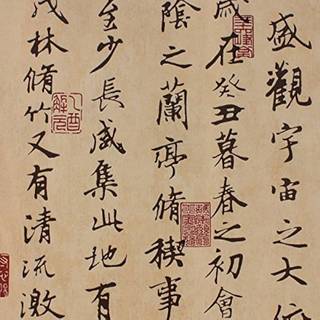 盛觀宇宙之大俯
歲在癸丑暮春之初會
陰之蘭亭脩稧事
至少長咸集此地有
茂林脩竹又有清流激
乙酉
解元